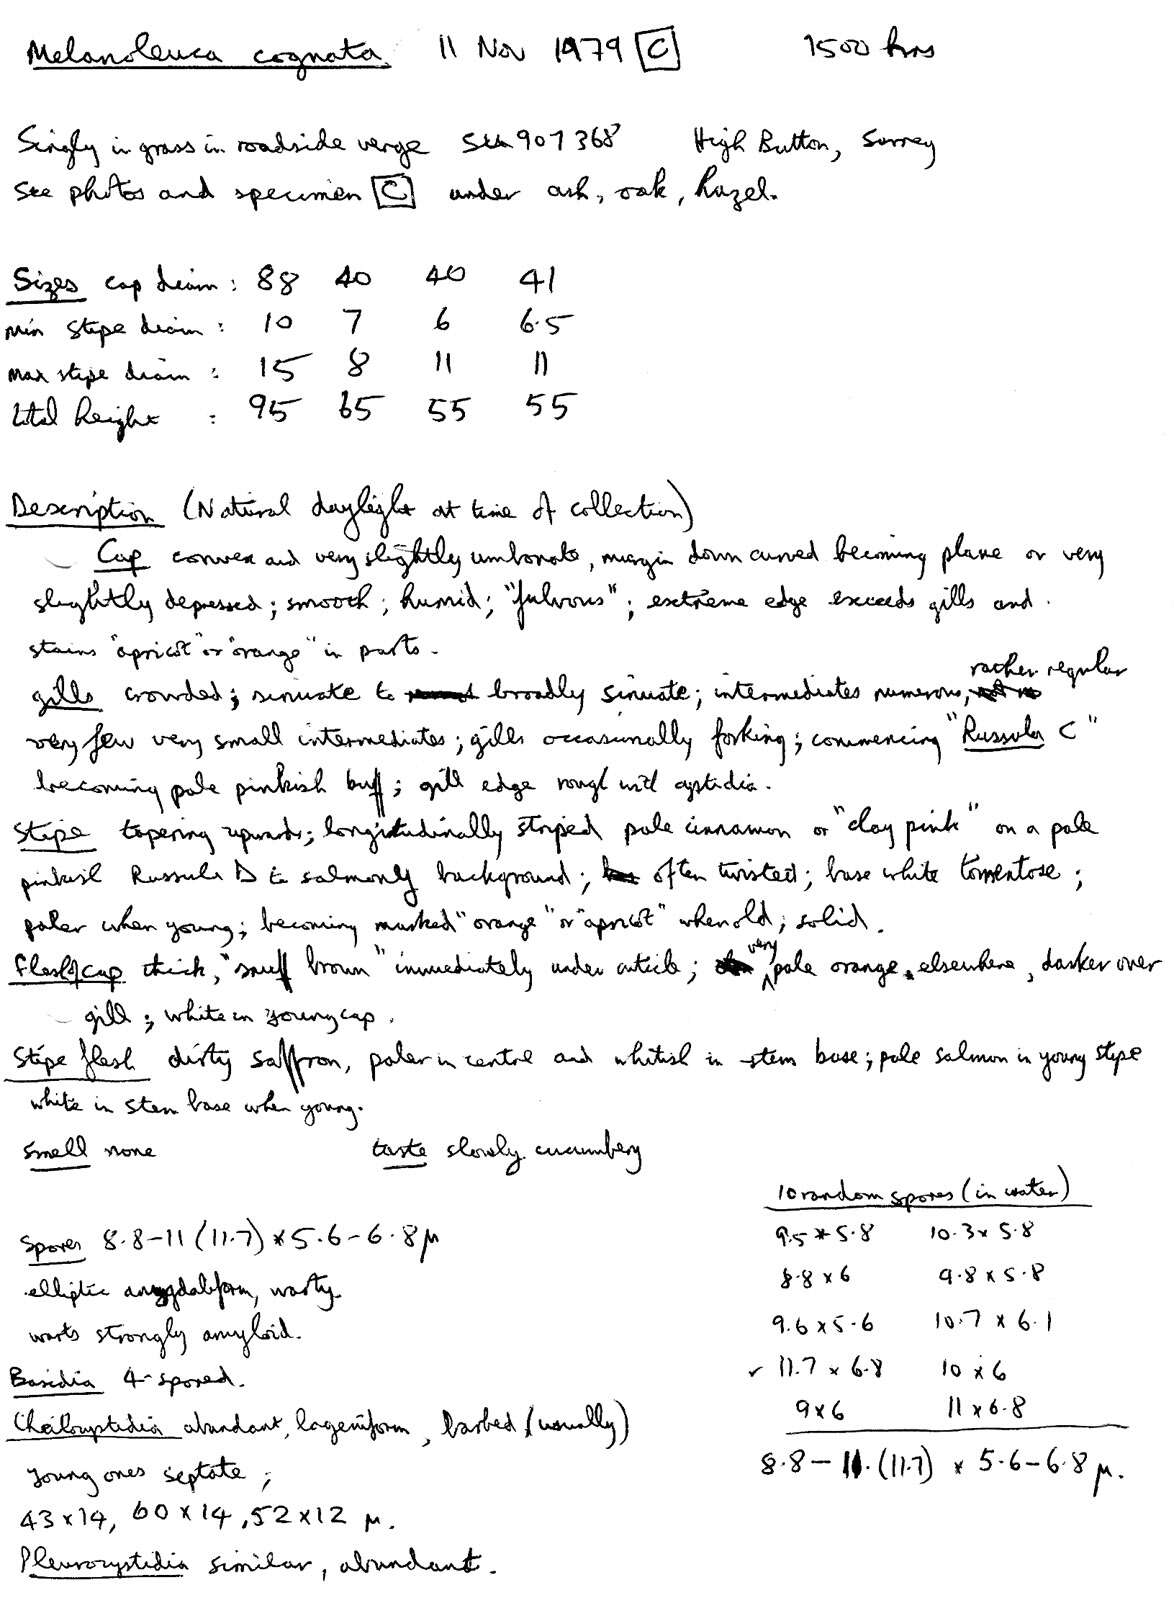 Melanoleuca cognata. 11 Nov 1979 [C] 1500 hrs
Singly in grass in roadside verge SU 907368 High Button, Surrey
See photos and specimen [C] under ash, oak, hazel.
Sizes cap diam: 88 40 40 41
min stipe diam: 10 7 6 6.5
max stipe diam: 15 8 11 11
total height: 95 65 55 55
Description (Natural daylight at time of collection)
Cap convex and very slightly umbonate, margin down curved becoming plane or very
slightly depressed; smooth; humid; "fulvous"; extreme edge exceeds gills and
stains "apricot" or "orange" in parts.
gills crowded; sinuate to broadly sinuate; intermediates numerous, rather regular
very few very small intermediates; gills occasionally forking; commencing "Russula C"
becoming pale pinkish buff; gill edge rough with cystidia.
Stipe tapering upwards; longitudinally striped pale cinnamon or "clay pink" on a pale
pinkish Russula D to salmony background; often twisted; base white tomentose;
paler when young; becoming marked "orange" or "apricot" when old; solid.
flesh of cap thick, "snuff brown" immediately under cuticle; very pale orange elsewhere, darker over
gill; white in young cap.
Stipe flesh dirty saffron, paler in centre and whitish in stem base; pale salmon in young stipe
white in stem base when young.
Smell none taste slowly cucumbery
Spores 8.8-11(11.7) x 5.6-6.8 µ
elliptic amygdaliform, warty
warts strongly amyloid.
Basidia 4-spored.
Cheilocystidia abundant, lageniform, barbed (usually)
young ones septate;
43 x 14, 60 x 14, 52 x 12 µ.
Pleurocystidia similar, abundant.
10 random spores (in water)
9.5 x 5.8 10.3 x 5.8
8.8 x 6 9.8 x 5.8
9.6 x 5.6 10.7 x 6.1
✓ 11.7 x 6.8 10 x 6
9 x 6 11 x 6.8
8.8 - 11. (11.7) x 5.6 - 6.8 µ.